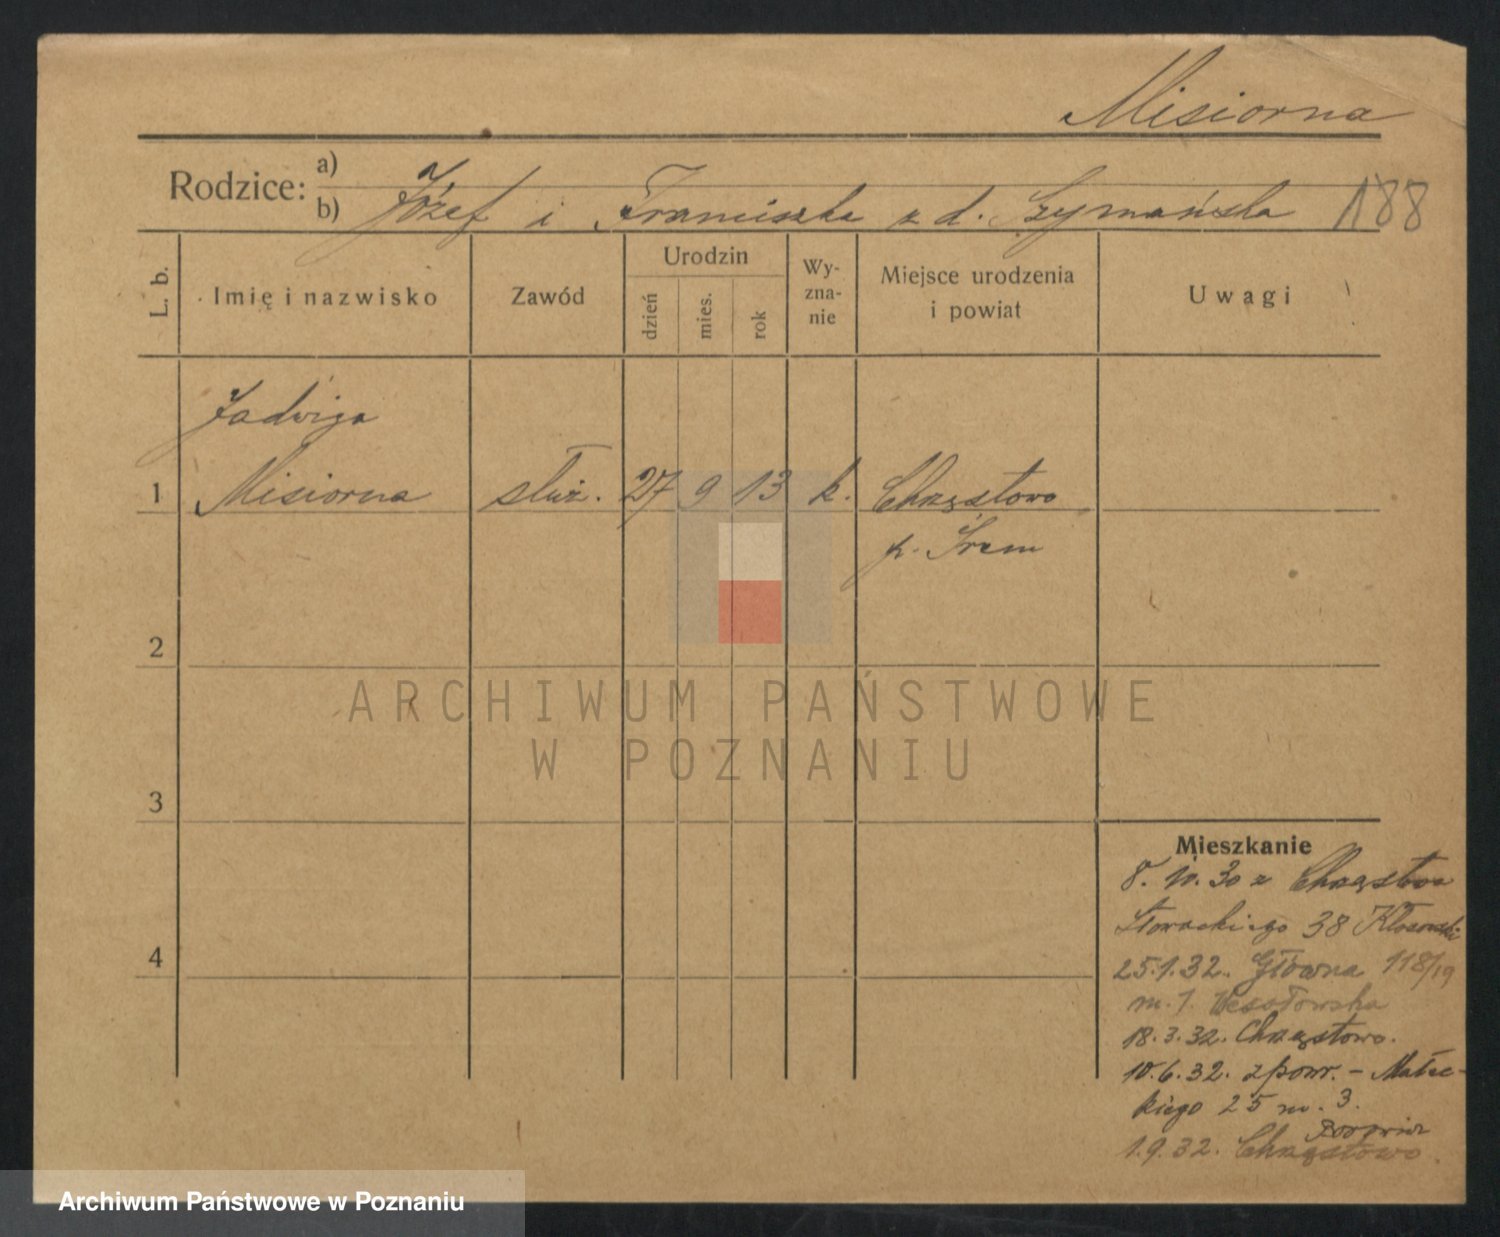 Misiorna
Rodzice: a)
b) Józef i Franciszka z d. Szymańska 188
L. b. Imię i nazwisko Zawód Urodzin dzień mies. rok Wy-zna-nie Miejsce urodzenia i powiat Uwagi
Jadwiga
1 Misiorna służ. 27 9 13 k. Chrząstowo
p. Śrem
2
ARCHIWUM PAŃSTWOWE
W POZNANIU
3
Mieszkanie
8. 10. 30 z Chrząstowa
Słowackiego 38 Kłosowski
4
25.1.32. Główna 118/19
m. 1. Wesołowska
18.3.32. Chrząstowo.
10.6.32. z powr. - Małec-
kiego 25 m. 3.
1.9.32. Chrząstowo.
Archiwum Państwowe w Poznaniu